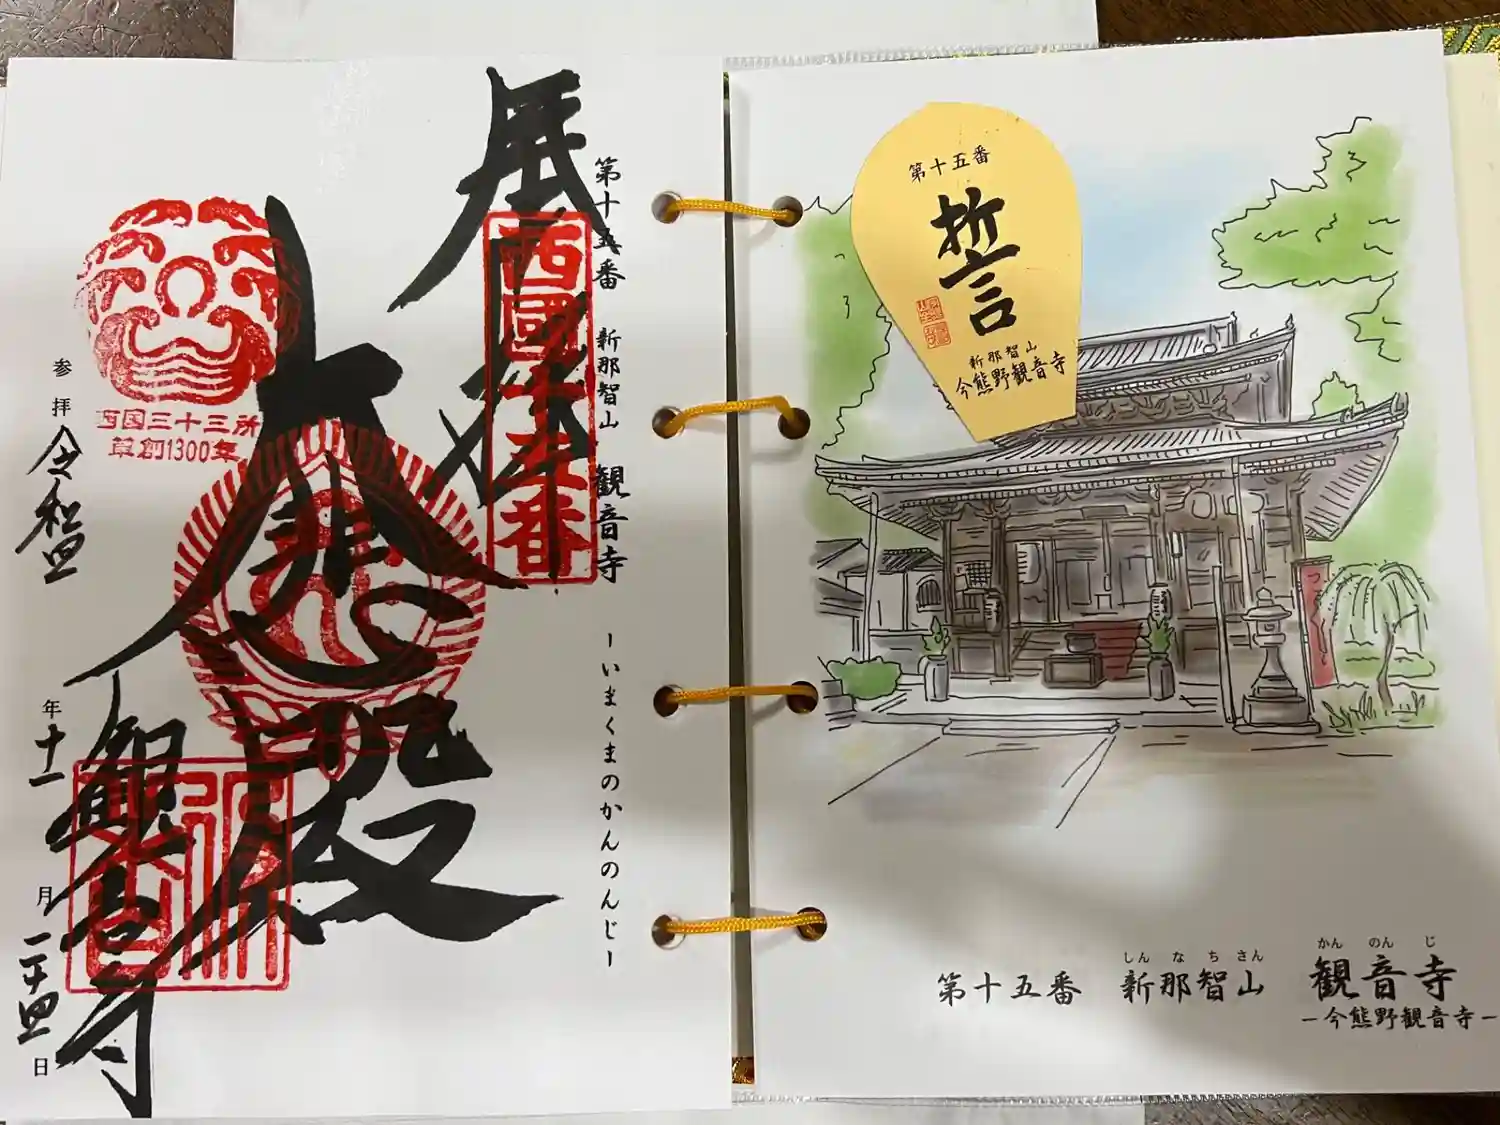 奉拝
大悲殿
観音寺
西國十五番
第十五番 新那智山 観音寺 ーいまくまのかんのんじー
西国三十三所
草創1300年
参拝 令和四年十一月二十四日
第十五番
誓
新那智山
今熊野観音寺
しんなちさん かんのんじ
第十五番 新那智山 観音寺
ー今熊野観音寺ー